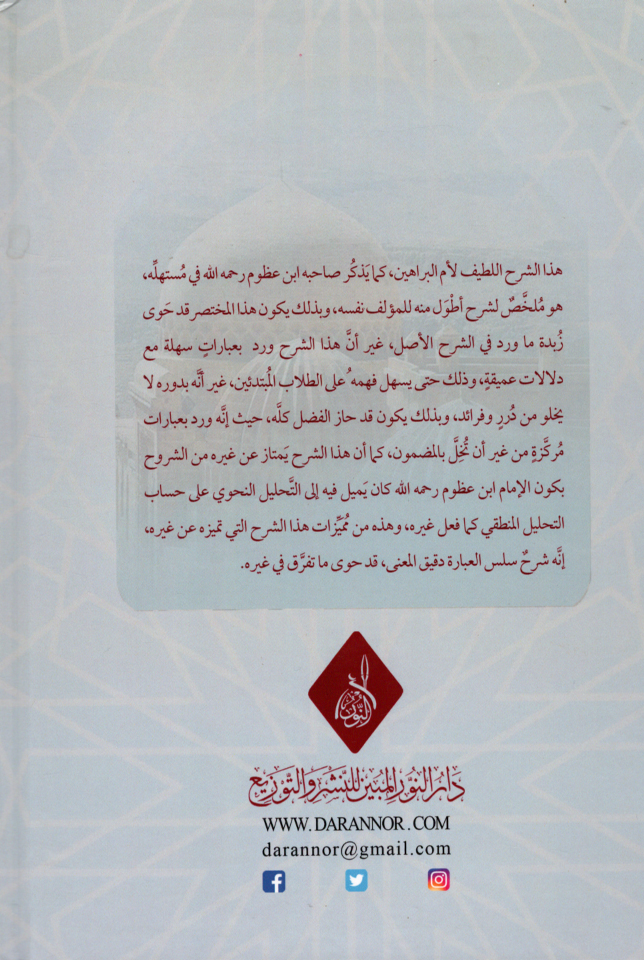 هذا الشرح اللطيف لأم البراهين، كما يَذكُر صاحبه ابن عظوم رحمه الله في مُستهلِّه،
هو مُلخَّصٌ لشرح أطْوَل منه للمؤلف نفسه، وبذلك يكون هذا المختصر قد حَوى
زُبدة ما ورد في الشرح الأصل، غير أنَّ هذا الشرح ورد بعباراتٍ سهلة مع
دلالات عميقةٍ، وذلك حتى يسهل فهمهُ على الطلاب المُبتدئين، غير أنَّه بدوره لا
يخلو من دُررٍ وفرائد، وبذلك يكون قد حاز الفضل كلَّه، حيث إنَّه ورد بعبارات
مُركَّزةٍ من غير أن تُخِلَّ بالمضمون، كما أن هذا الشرح يَمتاز عن غيره من الشروح
بكون الإمام ابن عظوم رحمه الله كان يَميل فيه إلى التَّحليل النحوي على حساب
التحليل المنطقي كما فعل غيره، وهذه من مُميِّزات هذا الشرح التي تميزه عن غيره،
إنَّه شرحٌ سلس العبارة دقيق المعنى، قد حوى ما تفرَّق في غيره.
النُّور
دَارُ النُّورِ المُبِين لِلنَّشْرِ وَالتَّوْزِيع
WWW.DARANNOR.COM
darannor@gmail.com